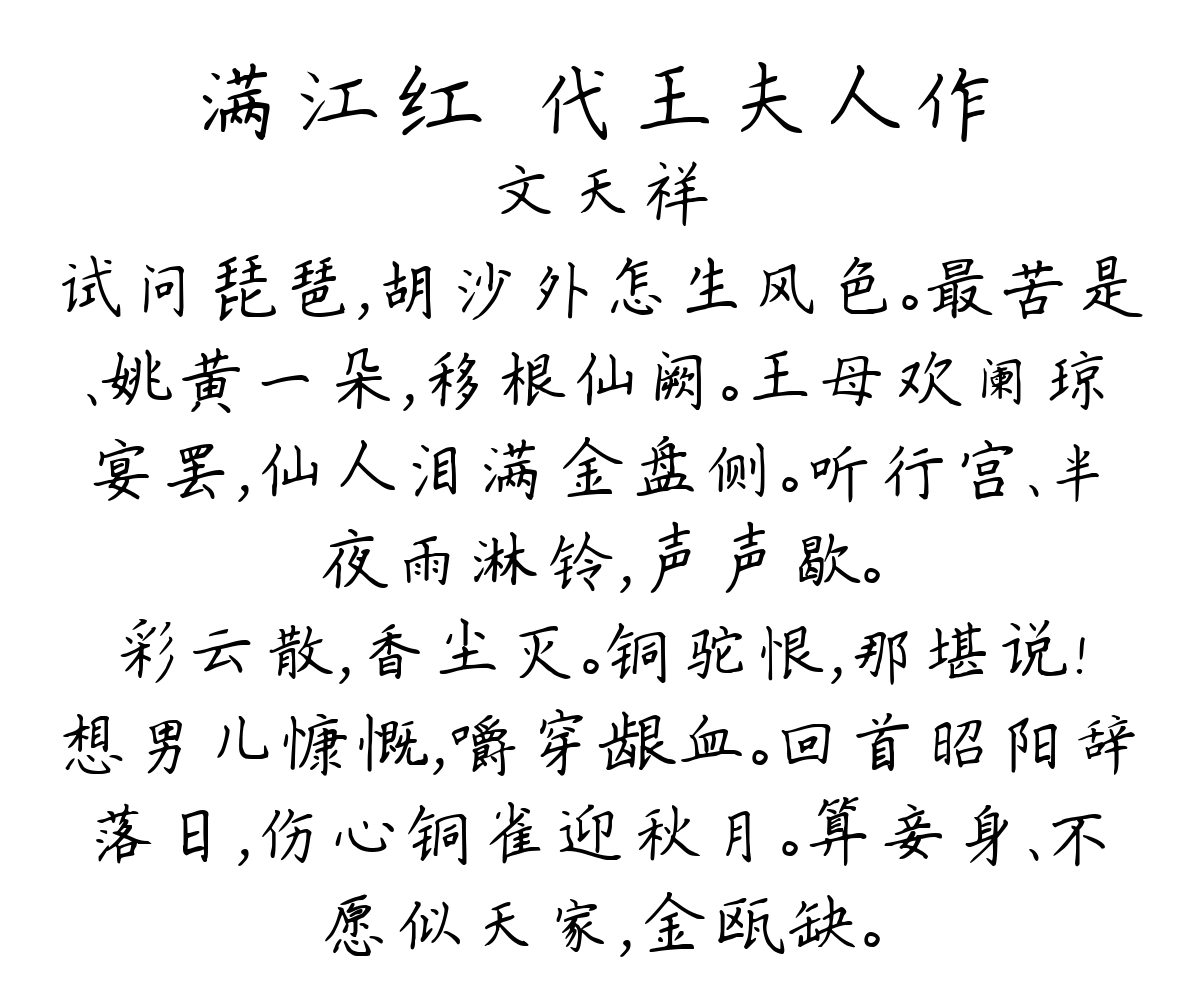 满江红 代王夫人作
文天祥
试问琵琶,胡沙外怎生风色。最苦是
、姚黄一朵,移根仙阙。王母欢阑琼
宴罢,仙人泪满金盘侧。听行宫、半
夜雨淋铃,声声歇。
彩云散,香尘灭。铜驼恨,那堪说!
想男儿慷慨,嚼穿龈血。回首昭阳辞
落日,伤心铜雀迎秋月。算妾身、不
愿似天家,金瓯缺。